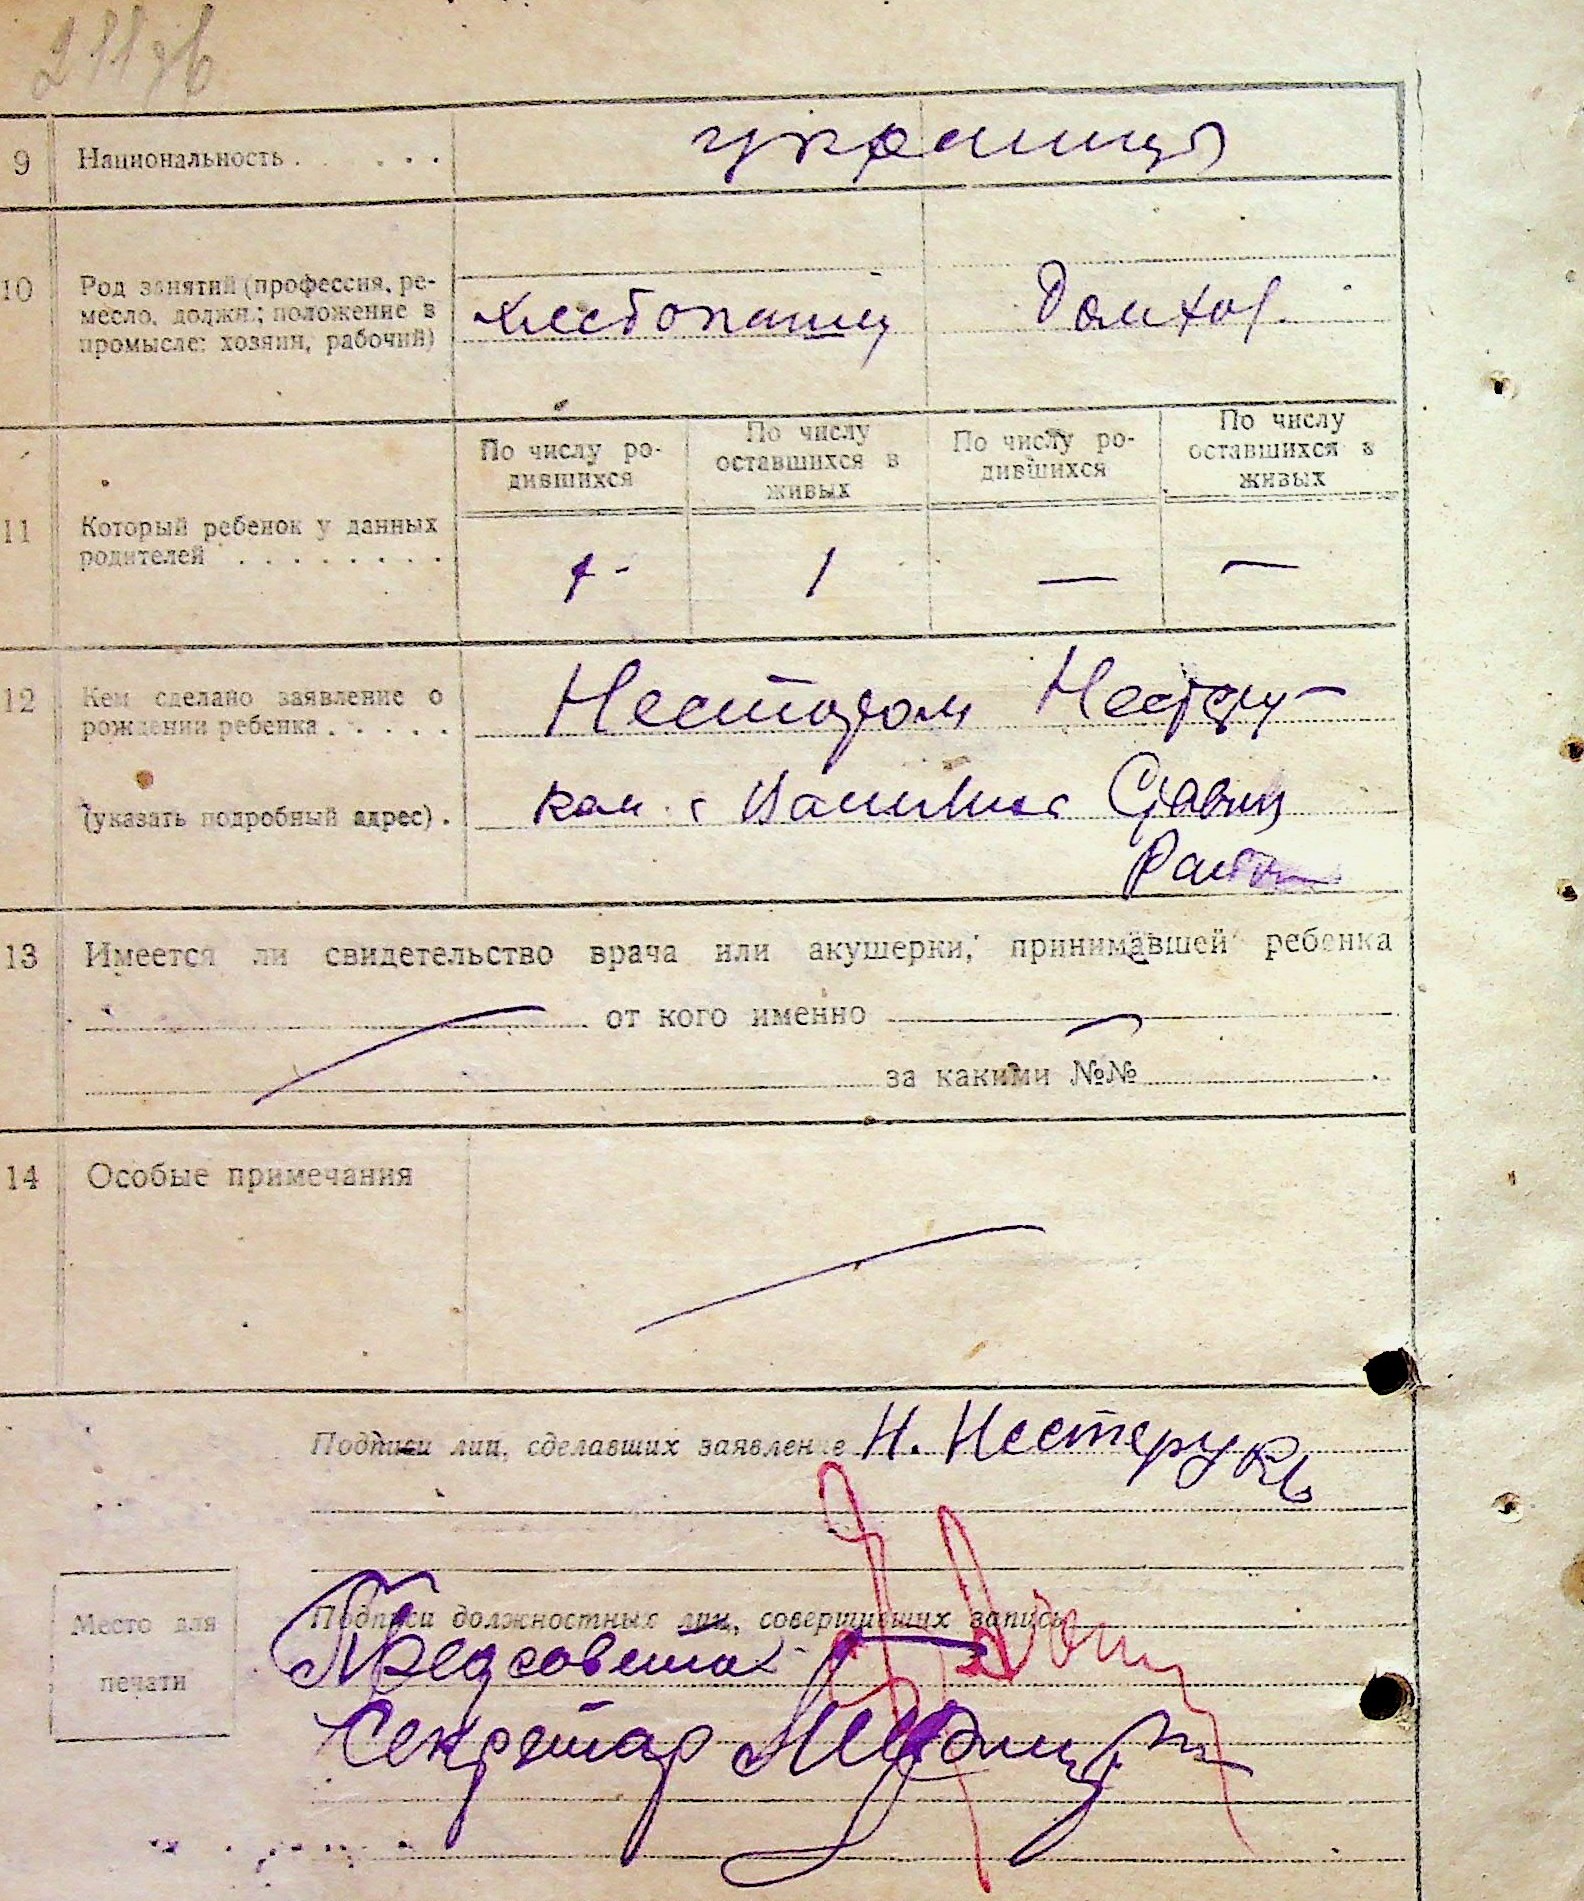 9 Национальность . . . . . украинцы
10 Род занятий (профессия, ре-
месло, должн.; положение в
промысле: хозяин, рабочий)
хлебопашец домхоз.
По числу ро-
дившихся
По числу
оставшихся в
живых
По числу ро-
дившихся
По числу
оставшихся в
живых
11 Который ребенок у данных
родителей . . . . . . . .
1 - 1 — —
12 Кем сделано заявление о
рождении ребенка . . . . .
Нестором Нестеру-
(указать подробный адрес) .
ком с
13 Имеется ли свидетельство врача или акушерки, принимавшей ребенка
от кого именно
за какими №№
14 Особые примечания
Подписи лиц, сделавших заявление Н. Нестерукъ
Место для
печати
Подписи должностных лиц, совершивших запись
Предсовета
Секретар